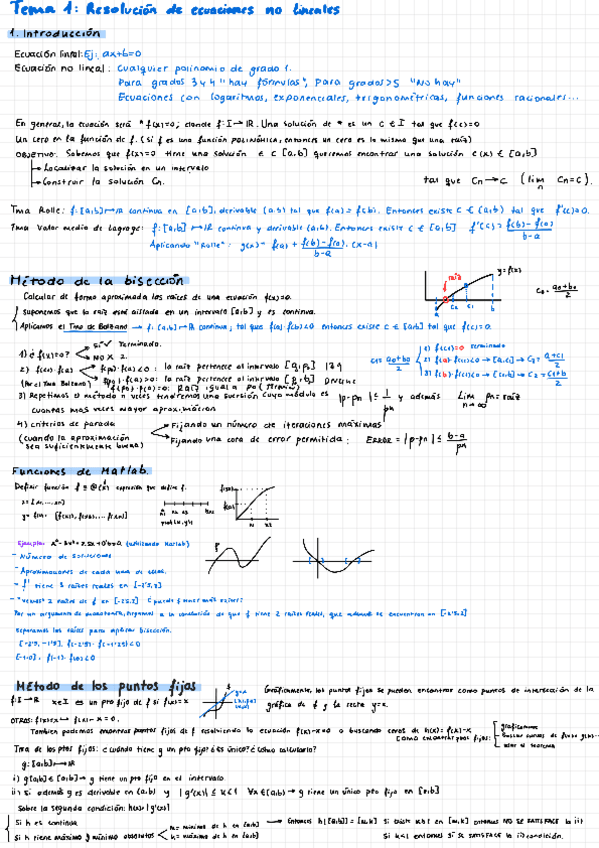 Tema 1: Resolución de ecuaciones no lineales
1. Introducción
Ecuación lineal: Ej: ax+b=0
Ecuación no lineal: Cualquier polinomio de grado 1.
Para grados 3 y 4 "hay fórmulas", Para grados >5 "No hay"
Ecuaciones con logaritmos, exponenciales, trigonométricas, funciones racionales...
En general, la ecuación será * f(x)=0; donde f: I→ℝ. Una solución de * es un c ∈ I tal que f(c)=0
Un cero en la función de f. (si f es una función polinómica, entonces un cero es lo mismo que una raíz)
OBJETIVO: Sabemos que f(x)=0 tiene una solución ∈ [a,b] queremos encontrar una solución c(x) ∈ [a,b]
Localizar la solución en un intervalo
Construir la solución Cn. tal que Cn→C (lim n Cn=C).
Tma Rolle: f:[a,b]→ℝ continua en [a,b], derivable (a,b) tal que f(a)=f(b). Entonces existe c ∈ (a,b) tal que f'(c)=0.
Tma Valor medio de Lagrange: f:[a,b]→ℝ continua y derivable (a,b). Entonces existe c ∈ [a,b] f'(c)=f(b)-f(a)/b-a
Aplicando "Rolle": g(x)= f(a)+ f(b)-f(a)/b-a .(x-a)
Método de la bisección
raíz y=f(x)
a C2 C1 b
C0= a0+b0/2
Calcular de forma aproximada las raíces de una ecuación f(x)=0.
suponemos que la raíz está aislada en un intervalo [a,b] y es continua.
Aplicamos el Tma de Bolzano → f:[a,b]→ℝ continua; tal que f(a)·f(b)<0 entonces existe c ∈ [a,b] tal que f(c)=0.
1) ¿f(x)=0? Sí ✓ Terminado.
NO X 2.
2) f(x)·f(a)
(Por el Tma Bolzano)
3) Repetimos el método n veces tendremos una sucesión cuyo módulo es |p-pn| ≤ 1/pn y además Lim n→∞ pn=raíz
cuantas más veces mayor aproximación
4) criterios de parada
(cuando la aproximación
sea suficientemente buena)
Fijando un número de iteraciones máximas
Fijando una cota de error permitida: Error=|p-pn| ≤ b-a/pn
Funciones de Matlab.
Definir función f = @(x) expresión que define f.
plot(x,y)
Ejemplo: (utilizando Matlab)
- Número de soluciones
- Aproximaciones de cada una de ellas.
- f' tiene 3 raíces reales en [-2'5,2]
- "vemos" 2 raíces de f en [-2'5,2] ¿puede f tener más raíces?
Por un argumento de monotonía, llegamos a la conclusión de que f tiene 2 raíces reales, que además se encuentran en [-2'5,2]
separamos las raíces para aplicar bisección.
[-1,0], f(-1)·f(0)<0
Método de los puntos fijos
f: I→ℝ x∈I es un pto fijo de f si f(x)=x
Gráficamente, los puntos fijos se pueden encontrar como puntos de intersección de la
gráfica de f y la recta y=x.
OTROS: f(x)=x → f(x)-x=0.
También podemos encontrar puntos fijos de f resolviendo la ecuación f(x)-x=0 o buscando ceros de h(x)=f(x)-x
Como encontrar ptos fijos:
gráficamente
usar el teorema
Tma de los ptos fijos: ¿cuándo tiene g un pto fijo? ¿es único? ¿cómo calcularlo?
g:[a,b]→ℝ
i) g[a,b] ∈ [a,b] → g tiene un pto fijo en el intervalo
ii) si además g es derivable en (a,b) y |g'(x)| ≤ K<1 ∀x∈(a,b) → g tiene un único pto fijo en [a,b]
Sobre la segunda condición: h(x)=|g'(x)|
Si h es continua
Si h tiene máximo y mínimo absolutos
m= mínimo de h en [a,b]
k= máximo de h en [a,b]
Entonces h([a,b])=[m,k]
Si existe k≥1 en [m,k] entonces NO SE SATISFACE la ii)
Si k<1 entonces sí se satisface la ii) condición.